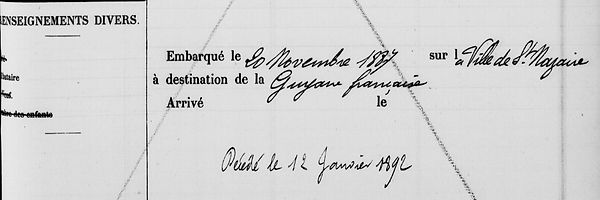 RENSEIGNEMENTS DIVERS.
Embarqué le 20 Novembre 1887 sur la Ville de St Nazaire
à destination de la Guyane française
Arrivé le
Décédé le 12 Janvier 1892